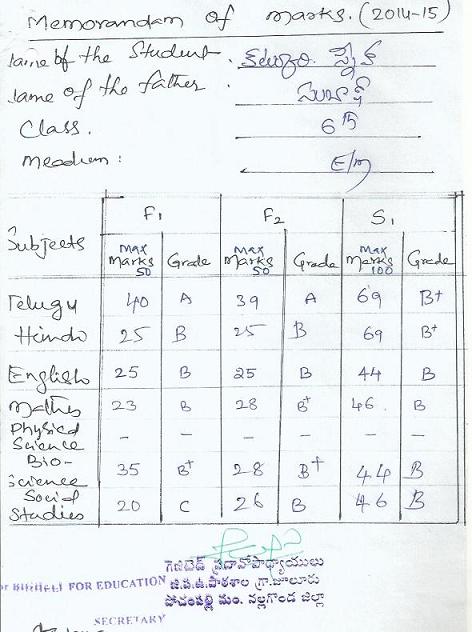 Memorandam of marks. (2014-15)
Name of the Student . కటకం. స్నేహ
Name of the father . సుభాష్
Class. 6th
Meadium : E/m
Subjects F1 F2 S1
Max Marks 50 Grade Max Marks 50 Grade Max Marks 100 Grade
Telugu 40 A 39 A 69 B+
Hindo 25 B 25 B 69 B+
English 25 B 25 B 44 B
Maths 23 B 28 B+ 46. B
Physical Science - - - - - -
Bio-Science 35 B+ 28 B+ 44 B
Social Studies 20 C 26 B 46 B
గెజిటెడ్ ప్రధానోపాధ్యాయులు
FOR EDUCATION జి.ప.ఉ.పాఠశాల గ్రా.జూలూరు
పోచంపల్లి మం. నల్లగొండ జిల్లా
SECRETARY